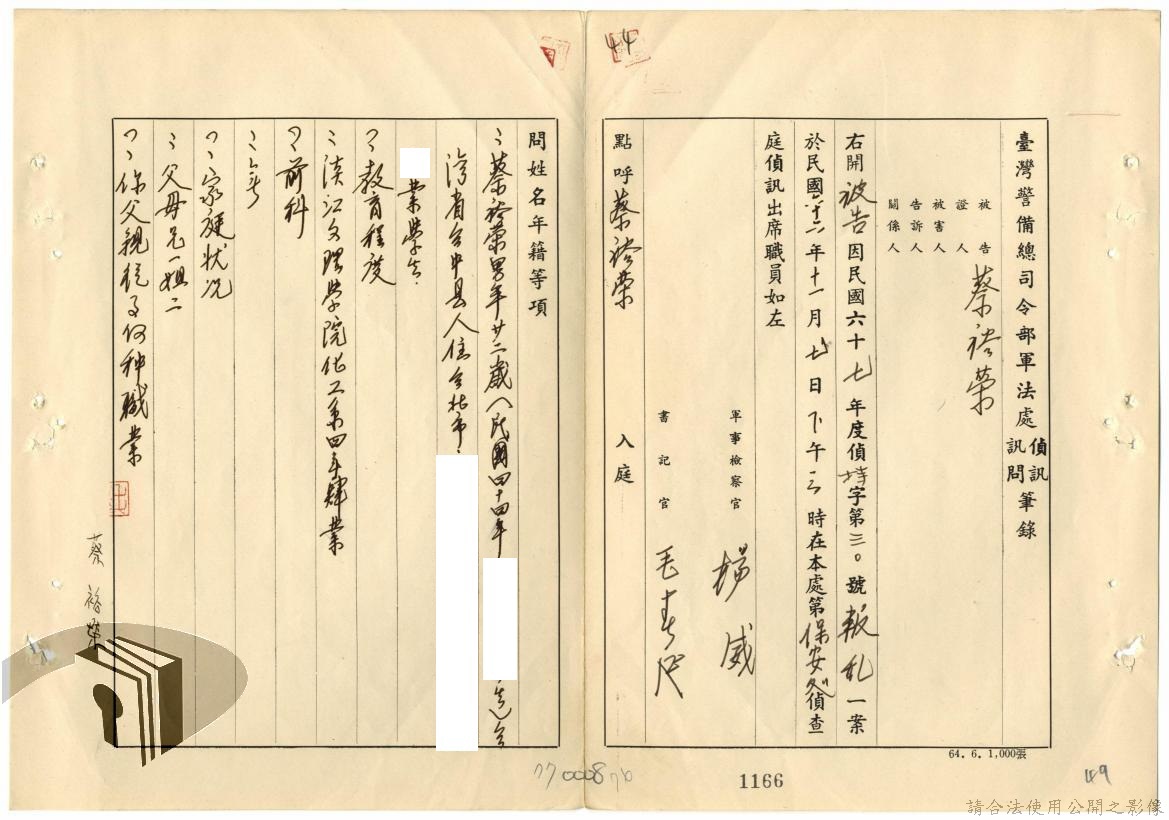 44
臺灣警備總司令部軍法處偵訊訊問筆錄
被告
證人
被害人
告訴人
關係人
蔡裕榮
右開被告因民國六十七年度偵特字第三〇號叛乱一案
於民國六十六年十一月七日下午三時在本處第保安處偵查
庭偵訊出席職員如左
軍事檢察官 楊威
書記官
點呼蔡裕榮 入庭
問姓名年籍等項
蔡裕榮男年廿二歲（民國四十四年
灣省台中县人住台北市
業學生
教育程度
淡江文理學院化工系四年肄業
前科
無
家庭状况
父母兄一姐二
你父親從事何种職業
蔡裕榮
64. 6. 1,000張
1166
49
請合法使用公開之影像